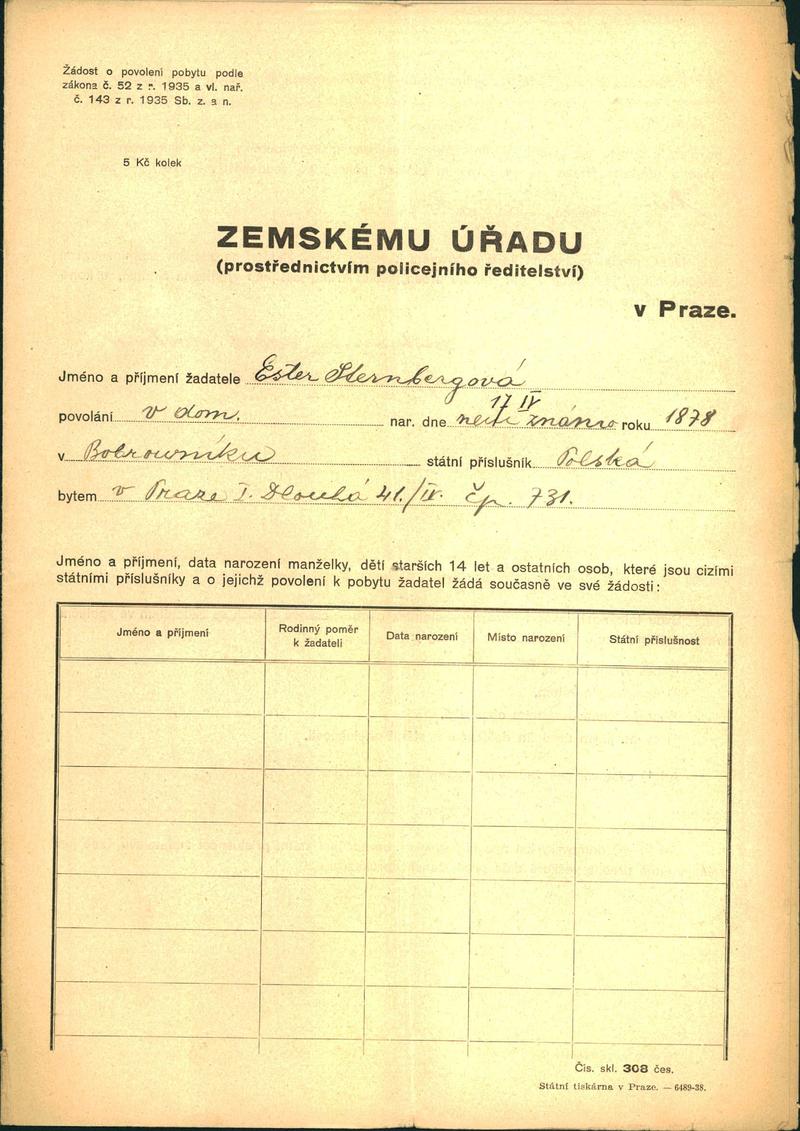 Žádost o povolení pobytu podle
zákona č. 52 z r. 1935 a vl. nař.
č. 143 z r. 1935 Sb. z. a n.
5 Kč kolek
ZEMSKÉMU ÚŘADU
(prostřednictvím policejního ředitelství)
v Praze.
Jméno a příjmení žadatele Ester Sternbergová
17 IV
povolání v dom. nar. dne není známo roku 1878
v Bobrowníku státní příslušník Polská
bytem v Praze I. Dlouhá 41./IV. čp. 731.
Jméno a příjmení, data narození manželky, dětí starších 14 let a ostatních osob, které jsou cizími
státními příslušníky a o jejichž povolení k pobytu žadatel žádá současně ve své žádosti:
Jméno a příjmení Rodinný poměr k žadateli Data narození Místo narození Státní příslušnost
Čís. skl. 308 čes.
Státní tiskárna v Praze. — 6489-38.